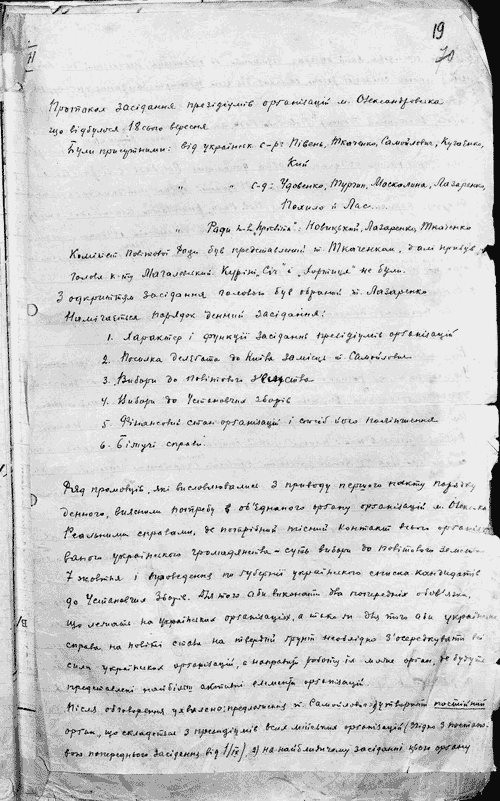 19
Протокол засідання президіумів організацій м. Олександрівська
що відбулося 18 сього вересня
Були присутніми: від українськ с-р: Півень, Ткаченко, Самойлович, Кучабенко,
Кий
" " с-д: Удовенко, Турпин, Москалина, Лазаренко,
Похило й Лас.
" Ради т-в „Просвіта": Новицький, Лазаренко, Ткаченко
Комітет Повітової Ради був представлений т. Ткаченком,
голова к-ту Магалевський. Курінь „Січ" і „Хортиця" не були.
З одкриттям засідання головою був обраний т. Лазаренко
Намічається порядок денний засідання:
1. Характер і функції засідання президіумів організацій
2. Посилка делегата до Київа замісць т. Самойлова
3. Вибори до Повітового Земства
4. Вибори до Установчих зборів
5. Фінансовий стан організацій і спосіб його поліпшення
6. Біжучі справи.
Ряд промовців, які висловлювались з приводу першого пункту порядку
денного, вияснили потребу в об'єднаного органу організацій м. Олександ
Реальними справами, де потрібний тісний контакт всього організо
ваного українського громадянства – суть вибори до повітового земства
7 жовтня і переведення по губернії українського списка кандидатів
до Установчих Зборів. Для того аби виконати два попередніх обов'язки,
що лежать на українських організаціях, а також для того аби українська
справа на повіті стала на твердий ґрунт необхідно з'осередкувати всі
сили українських організацій, а направить роботу їх може орган, де будуть
представлені найбільш активні елементи організацій
Після обговорення ухвалено: предложення т. Самойлова: 1) утворити постійний
орган, що складається з президіумів всих міських організацій (згідно з постано
вою попереднього засідання від 1/IX), 2) на найближчому засіданні цього органу